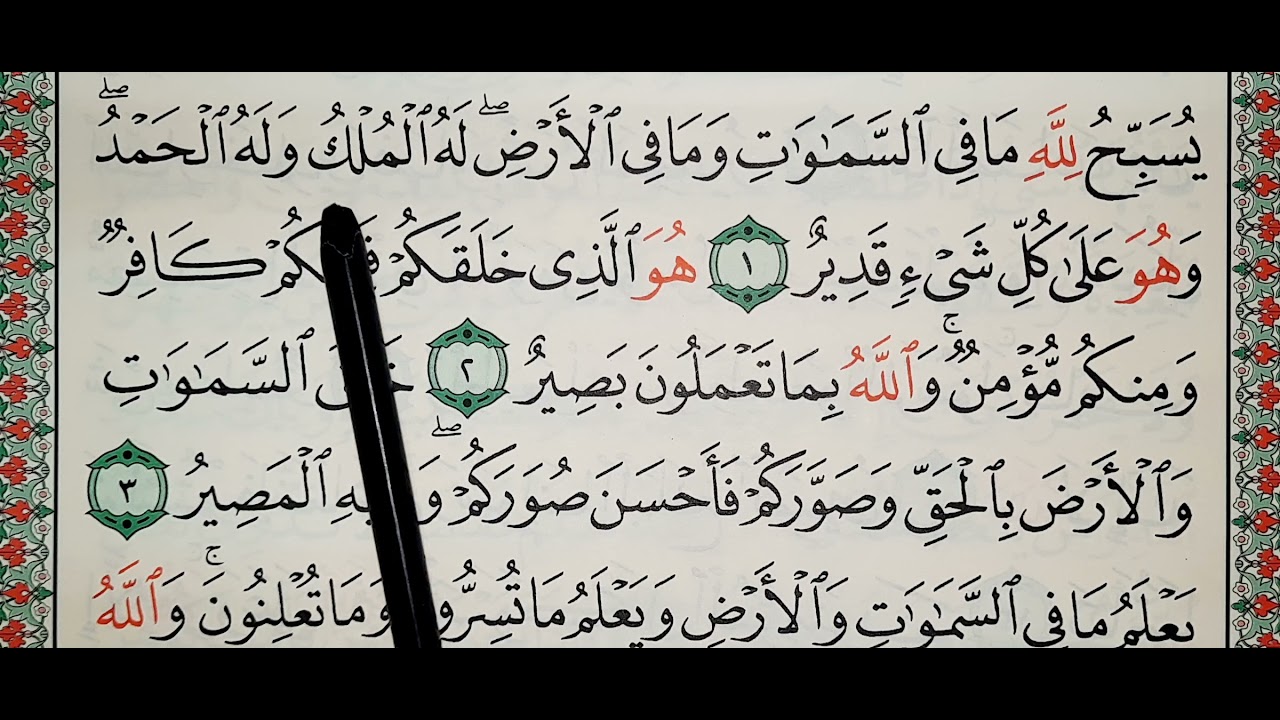 يُسَبِّحُ لِلَّهِ مَا فِى ٱلسَّمَـٰوَٰتِ وَمَا فِى ٱلْأَرْضِ ۖ لَهُ ٱلْمُلْكُ وَلَهُ ٱلْحَمْدُ ۖ
وَهُوَ عَلَىٰ كُلِّ شَىْءٍ قَدِيرٌ ١ هُوَ ٱلَّذِى خَلَقَكُمْ كَافِرٌ
وَمِنكُم مُّؤْمِنٌ ۚ وَٱللَّهُ بِمَا تَعْمَلُونَ بَصِيرٌ ٢ ٱلسَّمَـٰوَٰتِ
وَٱلْأَرْضَ بِٱلْحَقِّ وَصَوَّرَكُمْ فَأَحْسَنَ صُوَرَكُمْ ۖ ٱلْمَصِيرُ ٣
يَعْلَمُ مَا فِى ٱلسَّمَـٰوَٰتِ وَٱلْأَرْضِ وَيَعْلَمُ مَا وَمَا تُعْلِنُونَ ۚ وَٱللَّهُ